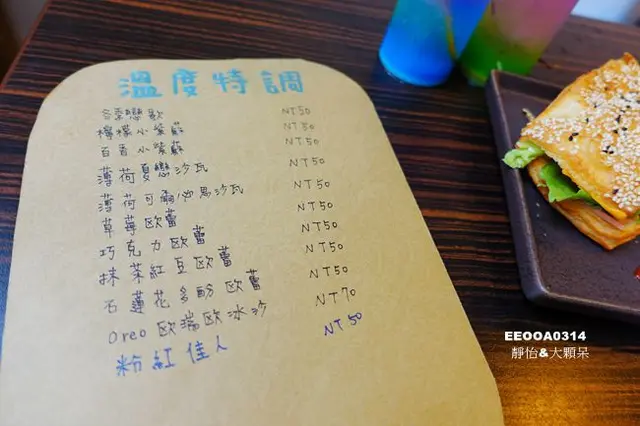 溫度特調
冬季戀歌 NT50
檸檬小紫蘇 NT50
百香小紫蘇 NT50
薄荷夏戀沙瓦 NT50
薄荷可爾必思沙瓦 NT50
草莓歐蕾 NT50
巧克力歐蕾 NT50
抹茶紅豆歐蕾 NT50
石蓮花多酚歐蕾 NT50
Oreo歐瑞歐冰沙 NT70
粉紅佳人 NT50
EEOOA0314
靜怡&大顆呆